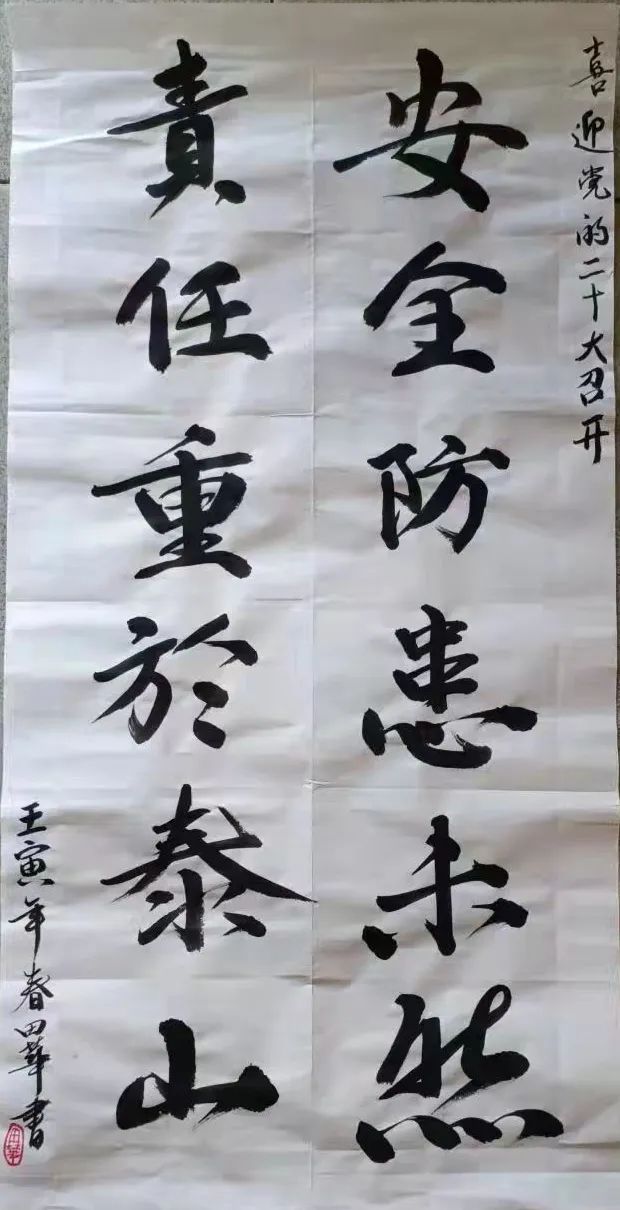 喜迎党的二十大召开
安全防患未然
責任重於泰山
壬寅年春田華書
田華